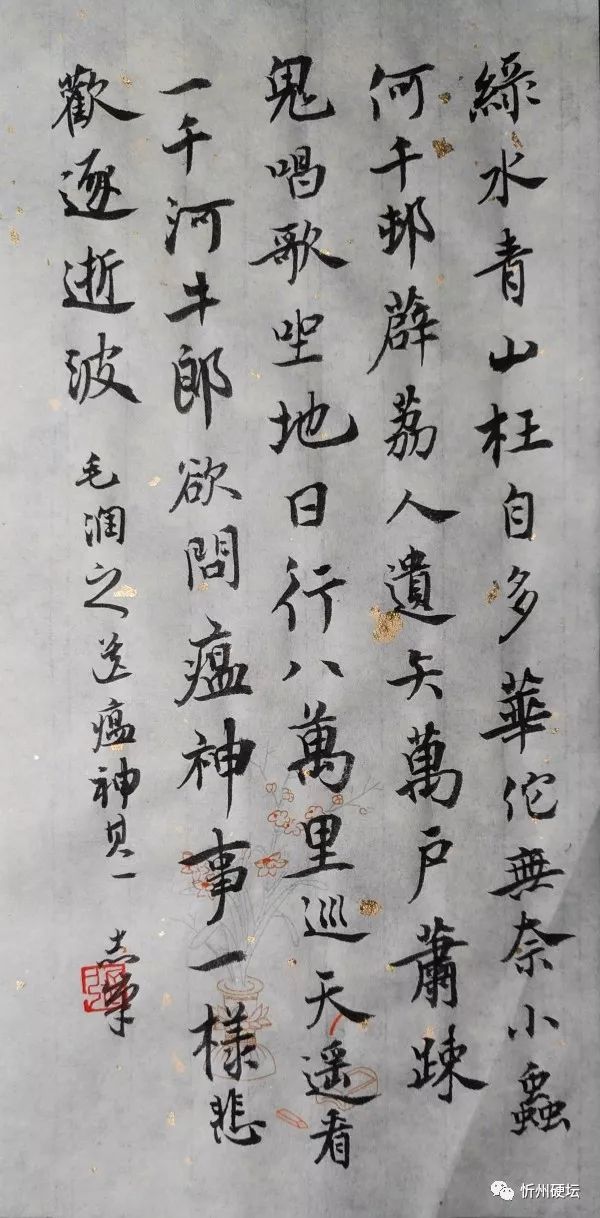 綠水青山枉自多華佗無奈小蟲
何千邨薜荔人遺矢萬戶蕭踈
鬼唱歌坐地日行八萬里巡天遥看
一千河牛郎欲問瘟神事一樣悲
歡逐逝波
毛润之送瘟神其一
忻州硬坛